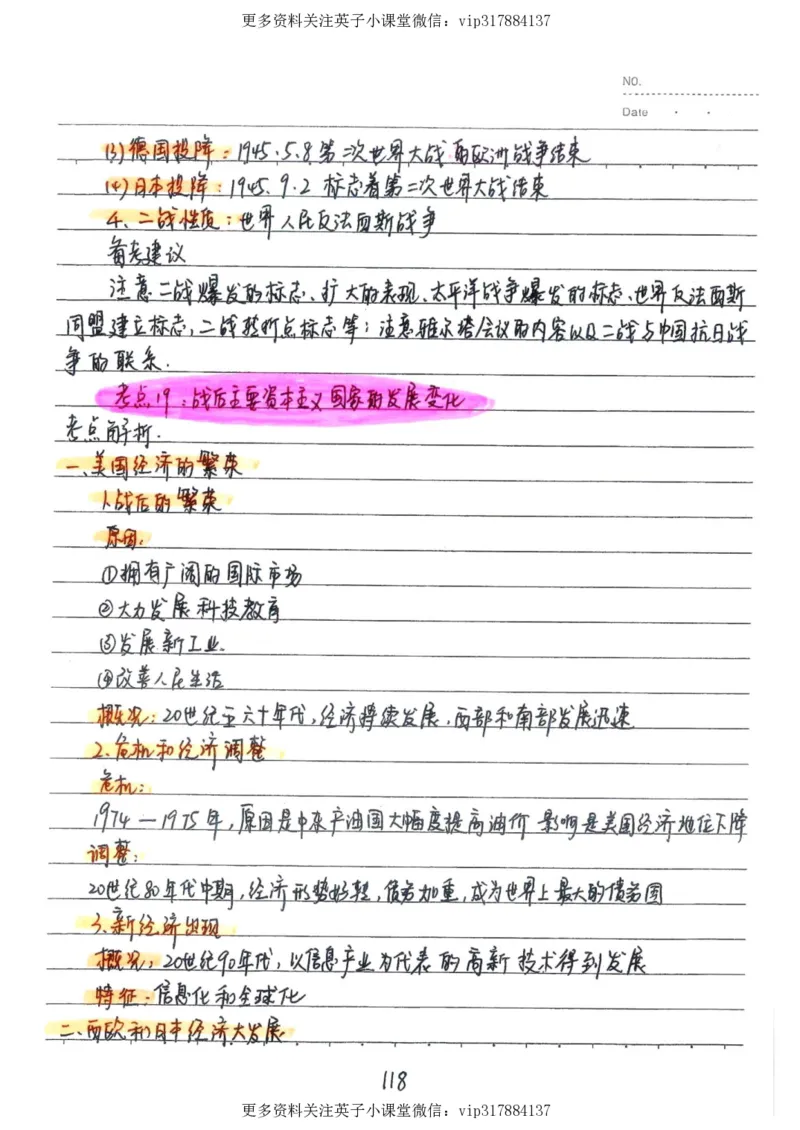 更多资料关注英子小课堂微信：vip317884137
NO.
Date
(3)德国投降：1945.5.8 第二次世界大战的欧洲战争结束
(4)日本投降：1945.9.2 标志着第二次世界大战结束
4、二战性质：世界人民反法西斯战争
备考建议
注意二战爆发的标志、扩大的表现、太平洋战争爆发的标志、世界反法西斯
同盟建立标志，二战转折点标志等；注意雅尔塔会议的内容以及二战与中国抗日战
争的联系.
考点19：战后主要资本主义国家的发展变化
考点解析.
一、美国经济的繁荣
1、战后的繁荣
原因：
①拥有广阔的国际市场
②大力发展科技教育
③发展新工业.
④改善人民生活
概况：20世纪五六十年代，经济持续发展，西部和南部发展迅速
2、危机和经济调整
危机：
1974—1975年，原因是中东产油国大幅度提高油价 影响是美国经济地位下降
调整：
20世纪80年代中期，经济形势好转，债务加重，成为世界上最大的债务国
3、新经济出现
概况：20世纪90年代，以信息产业为代表的高新技术得到发展
特征：信息化和全球化
二、西欧和日本经济大发展
118
更多资料关注英子小课堂微信：vip317884137